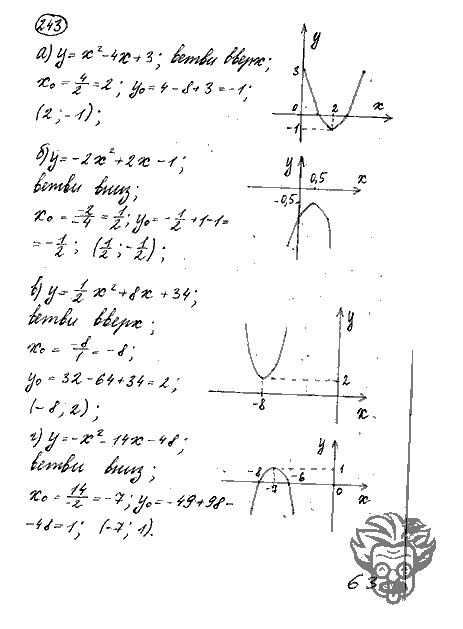 243
а) y = x² - 4x + 3; ветви вверх;
x₀ = 4/2 = 2; y₀ = 4 - 8 + 3 = -1;
(2; -1);
y
3
0
2
x
-1
б) y = -2x² + 2x - 1;
ветви вниз;
x₀ = -2/-4 = 1/2; y₀ = -1/2 + 1 - 1 =
= -1/2; (1/2; -1/2);
y
0,5
x
-0,5
в) y = 1/2 x² + 8x + 34;
ветви вверх;
x₀ = -8/1 = -8;
y₀ = 32 - 64 + 34 = 2;
(-8, 2);
y
2
-8
x
г) y = -x² - 14x - 48;
ветви вниз;
x₀ = 14/-2 = -7; y₀ = -49 + 98 -
-48 = 1; (-7; 1).
y
-8
-6
1
-7
0
x
63